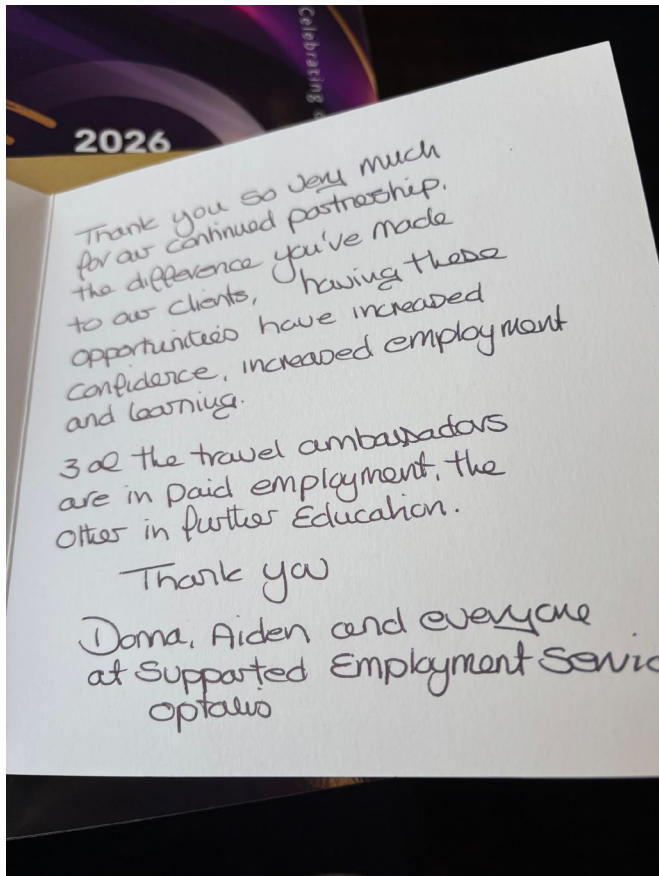 Celebrating
2026
Thank you so very much
for our continued partnership.
the difference you've made
to our clients, having these
opportunities have increased
confidence, increased employment
and learning.
3 of the travel ambassadors
are in paid employment, the
other in further Education.
Thank you
Donna, Aiden and everyone
at Supported Employment Servic
Optalis